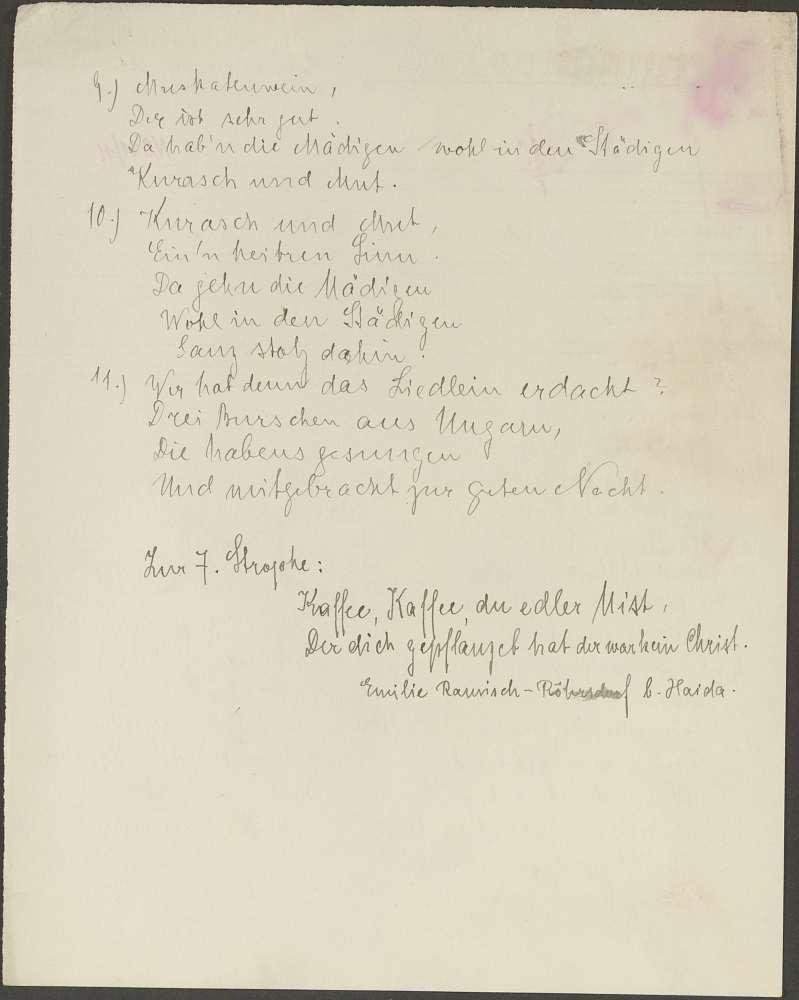 9.) Muskatenwein,
Der ist sehr gut.
Da hab'n die Mädigen wohl in den Städigen
Kurasch und Mut.
10.) Kurasch und Mut,
Ein'n heitren Sinn.
Da gehn die Mädigen
Wohl in den Städigen
Ganz stolz dahin.
11.) Wer hat denn das Liedlein erdacht?
Drei Burschen aus Ungarn,
Die habens gesungen
Und mitgebracht zur guten Nacht.
Zur 7. Strophe:
Kaffee, Kaffee, du edler Mist,
Der dich gepflanzet hat der war kein Christ.
Emilie Rausch - Röhrsdorf b. Haida.